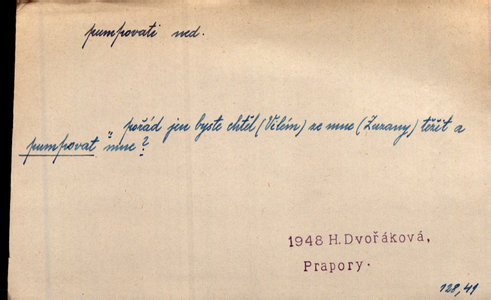 pumpovati ned.
pořád jen byste chtěl (Vilém) ze mne (Zuzany) těžit a
pumpovat "mne?
1948 H. Dvořáková,
Prapory.
128,41